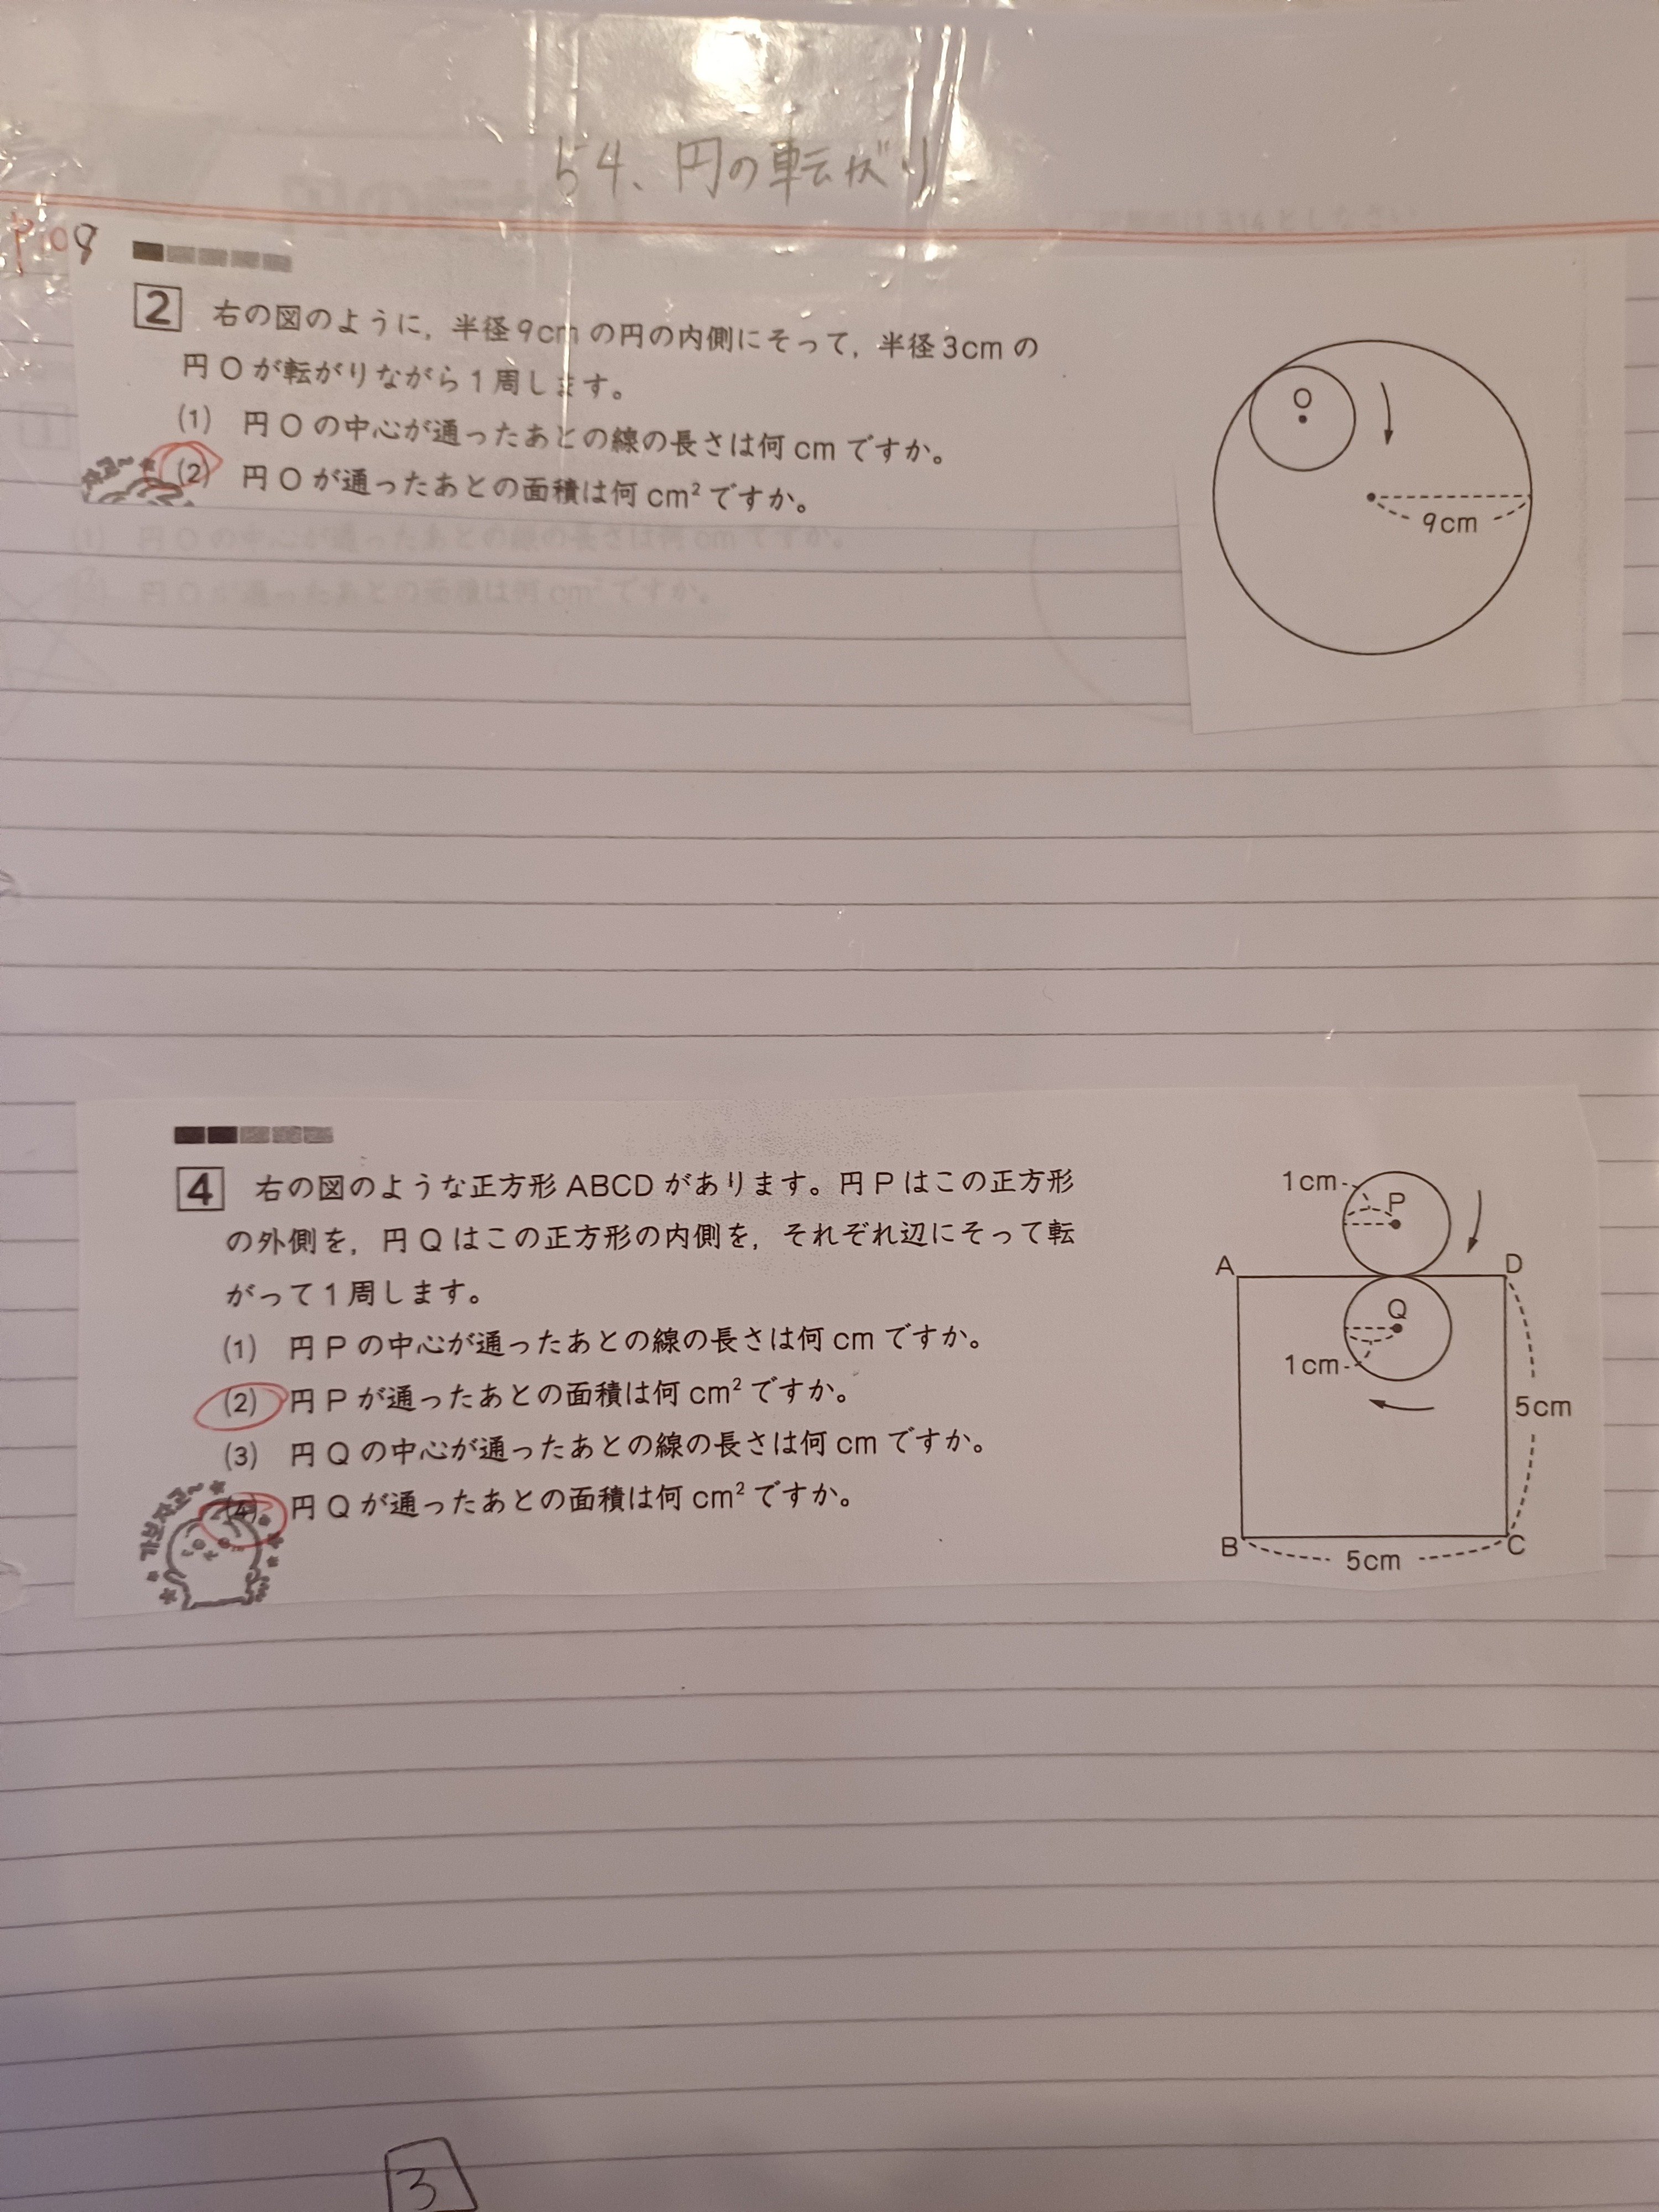 54、円の転がり
P108
2 右の図のように，半径9cmの円の内側にそって，半径3cmの
円Oが転がりながら1周します。
(1) 円Oの中心が通ったあとの線の長さは何cmですか。
(2) 円Oが通ったあとの面積は何cm²ですか。
O
9cm
(1) 円Oの中心が通ったあとの線の長さは何cmですか。
(2) 円Oが通ったあとの面積は何cm²ですか。
4 右の図のような正方形ABCDがあります。円Pはこの正方形
の外側を，円Qはこの正方形の内側を，それぞれ辺にそって転
がって1周します。
(1) 円Pの中心が通ったあとの線の長さは何cmですか。
(2) 円Pが通ったあとの面積は何cm²ですか。
(3) 円Qの中心が通ったあとの線の長さは何cmですか。
(4) 円Qが通ったあとの面積は何cm²ですか。
가보자고~
1cm
P
A
D
Q
1cm
5cm
B
C
5cm
3